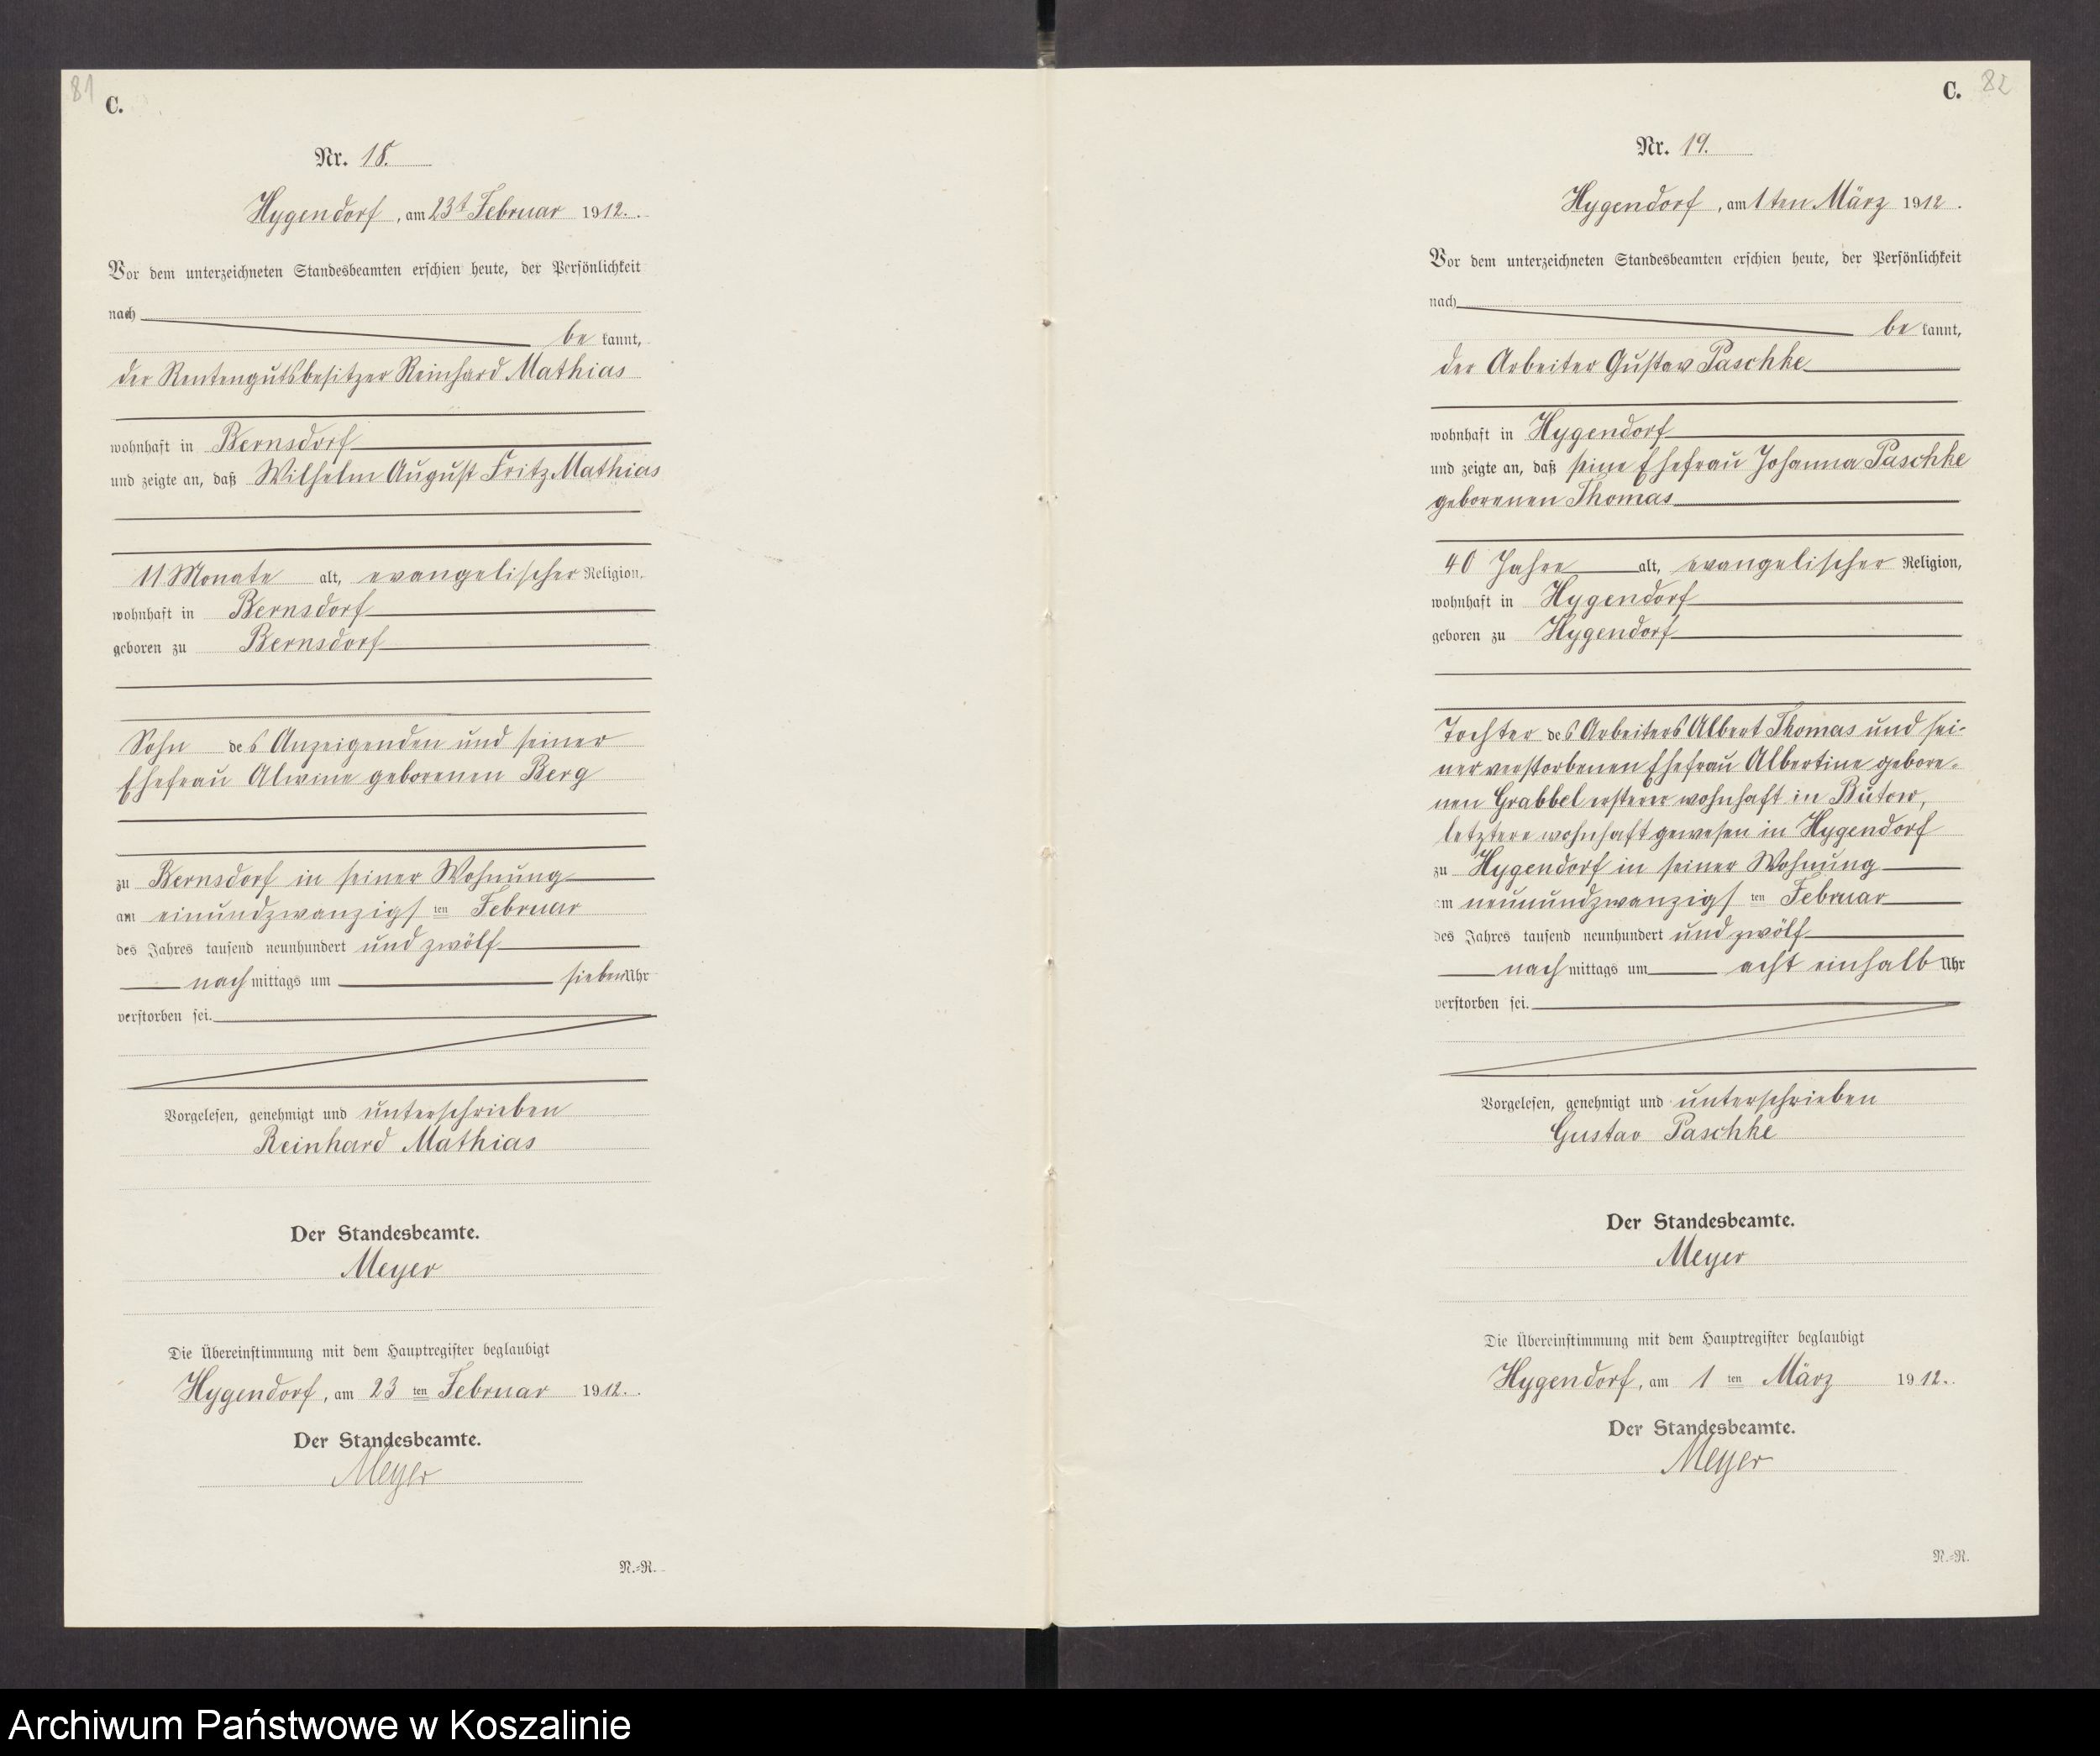 81
C.
Nr. 18.
Hygendorf, am 23t Februar 1912.
Vor dem unterzeichneten Standesbeamten erschien heute, der Persönlichkeit
nach
be kannt,
der Rentengutsbesitzer Reinhard Mathias
wohnhaft in Bernsdorf
und zeigte an, daß Wilhelm August Fritz Mathias
11 Monate alt, evangelischer Religion,
wohnhaft in Bernsdorf
geboren zu Bernsdorf
Sohn des Anzeigenden und seiner
Ehefrau Alwine geborenen Berg
zu Bernsdorf in seiner Wohnung
am einundzwanzigs ten Februar
des Jahres tausend neunhundert und zwölf
nach mittags um sieben Uhr
verstorben sei.
Vorgelesen, genehmigt und unterschrieben
Reinhard Mathias
Der Standesbeamte.
Meyer
Die Übereinstimmung mit dem Hauptregister beglaubigt
Hygendorf, am 23 ten Februar 1912.
Der Standesbeamte.
Meyer
N.=R.
C. 82
Nr. 19.
Hygendorf, am 1ten März 1912.
Vor dem unterzeichneten Standesbeamten erschien heute, der Persönlichkeit
nach
be kannt,
der Arbeiter Gustav Paschke
wohnhaft in Hygendorf
und zeigte an, daß seine Ehefrau Johanna Paschke
geborenen Thomas
40 Jahre alt, evangelischer Religion,
wohnhaft in Hygendorf
geboren zu Hygendorf
Tochter des Arbeiters Albert Thomas und sei-
ner verstorbenen Ehefrau Albertine gebore-
nen Grabbel ersterer wohnhaft in Bütow,
letztere wohnhaft gewesen in Hygendorf
zu Hygendorf in seiner Wohnung
am neunundzwanzigs ten Februar
des Jahres tausend neunhundert und zwölf
nach mittags um acht einhalb Uhr
verstorben sei.
Vorgelesen, genehmigt und unterschrieben
Gustav Paschke
Der Standesbeamte.
Meyer
Die Übereinstimmung mit dem Hauptregister beglaubigt
Hygendorf, am 1 ten März 1912.
Der Standesbeamte.
Meyer
N.=R.
Archiwum Państwowe w Koszalinie